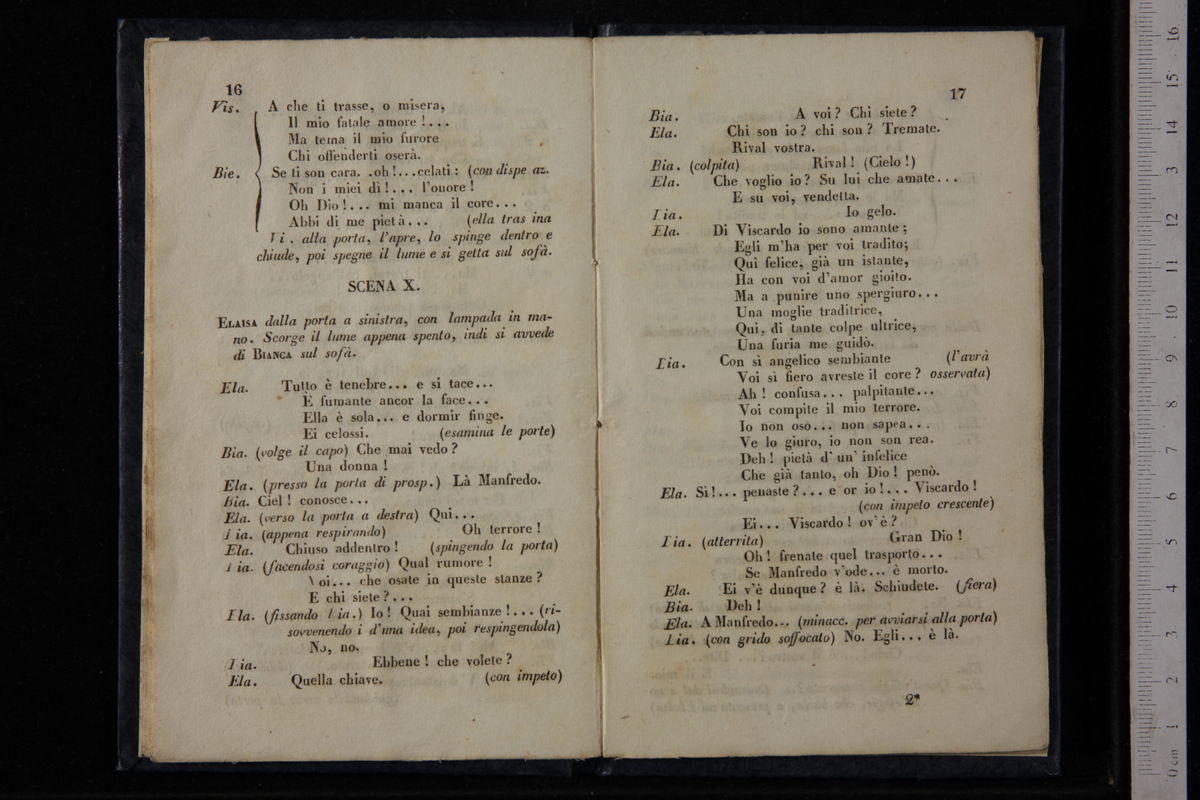 16
Vis. A che ti trasse, o misera,
Il mio fatale amore!...
Ma tema il mio furore
Chi offenderti oserà.
Bie. Se ti son cara. .oh!...celati: (con dispe az.
Non i miei dì!... l'onore!
Oh Dio!... mi manca il core...
Abbi di me pietà... (ella tras ina
Vi . alla porta, l'apre, lo spinge dentro e
chiude, poi spegne il lume e si getta sul sofà.
SCENA X.
ELAISA dalla porta a sinistra, con lampada in ma-
no. Scorge il lume appena spento, indi si avvede
di BIANCA sul sofà.
Ela. Tutto è tenebre... e si tace...
E fumante ancor la face...
Ella è sola... e dormir finge.
Ei celossi. (esamina le porte)
Bia. (volge il capo) Che mai vedo?
Una donna!
Ela. (presso la porta di prosp.) Là Manfredo.
Bia. Ciel! conosce...
Ela. (verso la porta a destra) Qui...
Bia. (appena respirando) Oh terrore!
Ela. Chiuso addentro! (spingendo la porta)
Bia. (facendosi coraggio) Qual rumore!
Voi... che osate in queste stanze?
E chi siete?...
Ela. (fissando Bia.) Io! Quai sembianze!... (ri-
sovvenendo i d'una idea, poi respingendola)
No, no.
Bia. Ebbene! che volete?
Ela. Quella chiave. (con impeto)
17
Bia. A voi? Chi siete?
Ela. Chi son io? chi son? Tremate.
Rival vostra.
Bia. (colpita) Rival! (Cielo!)
Ela. Che voglio io? Su lui che amate...
E su voi, vendetta.
Bia. Io gelo.
Ela. Di Viscardo io sono amante;
Egli m'ha per voi tradito;
Qui felice, già un istante,
Ha con voi d'amor gioito.
Ma a punire uno spergiuro...
Una moglie traditrice,
Qui, di tante colpe ultrice,
Una furia me guidò.
Bia. Con sì angelico sembiante (l'avrà
Voi sì fiero avreste il core? osservata)
Ah! confusa... palpitante...
Voi compite il mio terrore.
Io non oso... non sapea...
Ve lo giuro, io non son rea.
Deh! pietà d'un' infelice
Che già tanto, oh Dio! penò.
Ela. Sì!... penaste?... e or io!... Viscardo!
(con impeto crescente)
Ei... Viscardo! ov'è?
Bia. (atterrita) Gran Dio!
Oh! frenate quel trasporto...
Se Manfredo v'ode... è morto.
Ela. Ei v'è dunque? è là. Schiudete. (fiera)
Bia. Deh!
Ela. A Manfredo... (minacc. per avviarsi alla porta)
Bia. (con grido soffocato) No. Egli... è là.
2*
0 cm 1 2 3 4 5 6 7 8 9 10 11 12 13 14 15 16